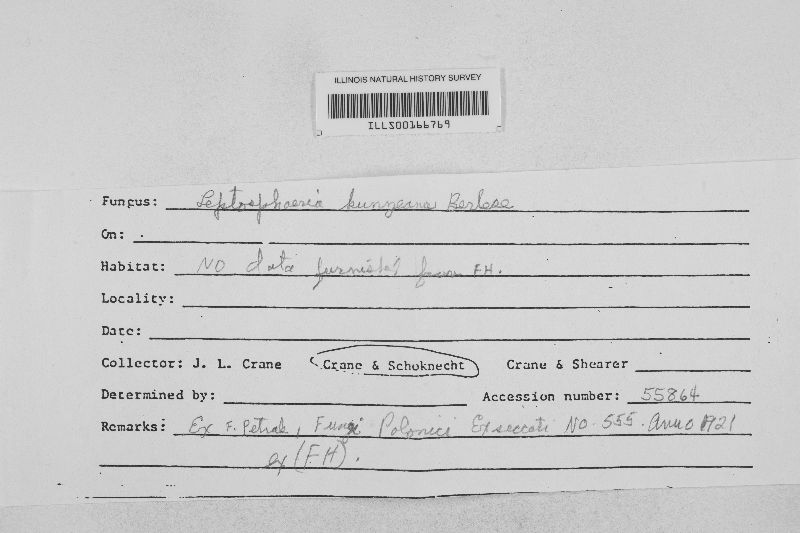 ILLINOIS NATURAL HISTORY SURVEY
ILLS00166769
Fungus: Leptosphaeria kunzeana Berlese
On:
Habitat: NO data furnished from F.H.
Locality:
Date:
Collector: J. L. Crane Crane & Schoknecht Crane & Shearer
Determined by: Accession number: 55864
Remarks: Ex F. Petrak, Fungi Polonici Exseccati NO. 555. Anno 1921
ex (F.H).